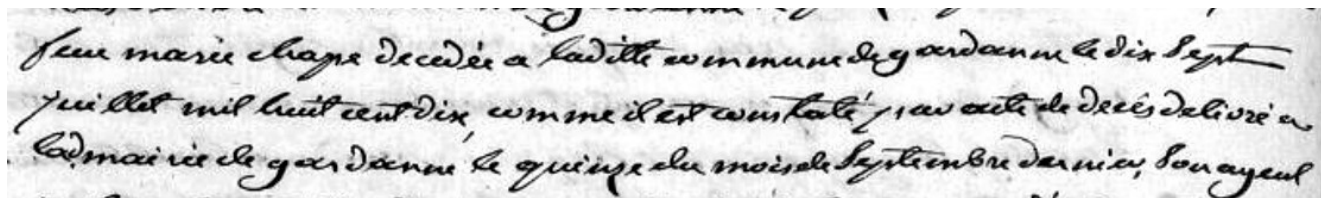 feue marie chape decedée a laditte commune de gardanne le dix sept
juillet mil huit cent dix, comme il est constaté par acte de decès delivré a
lad. mairie de gardanne le quinze du mois de septembre dernier, son ayeul